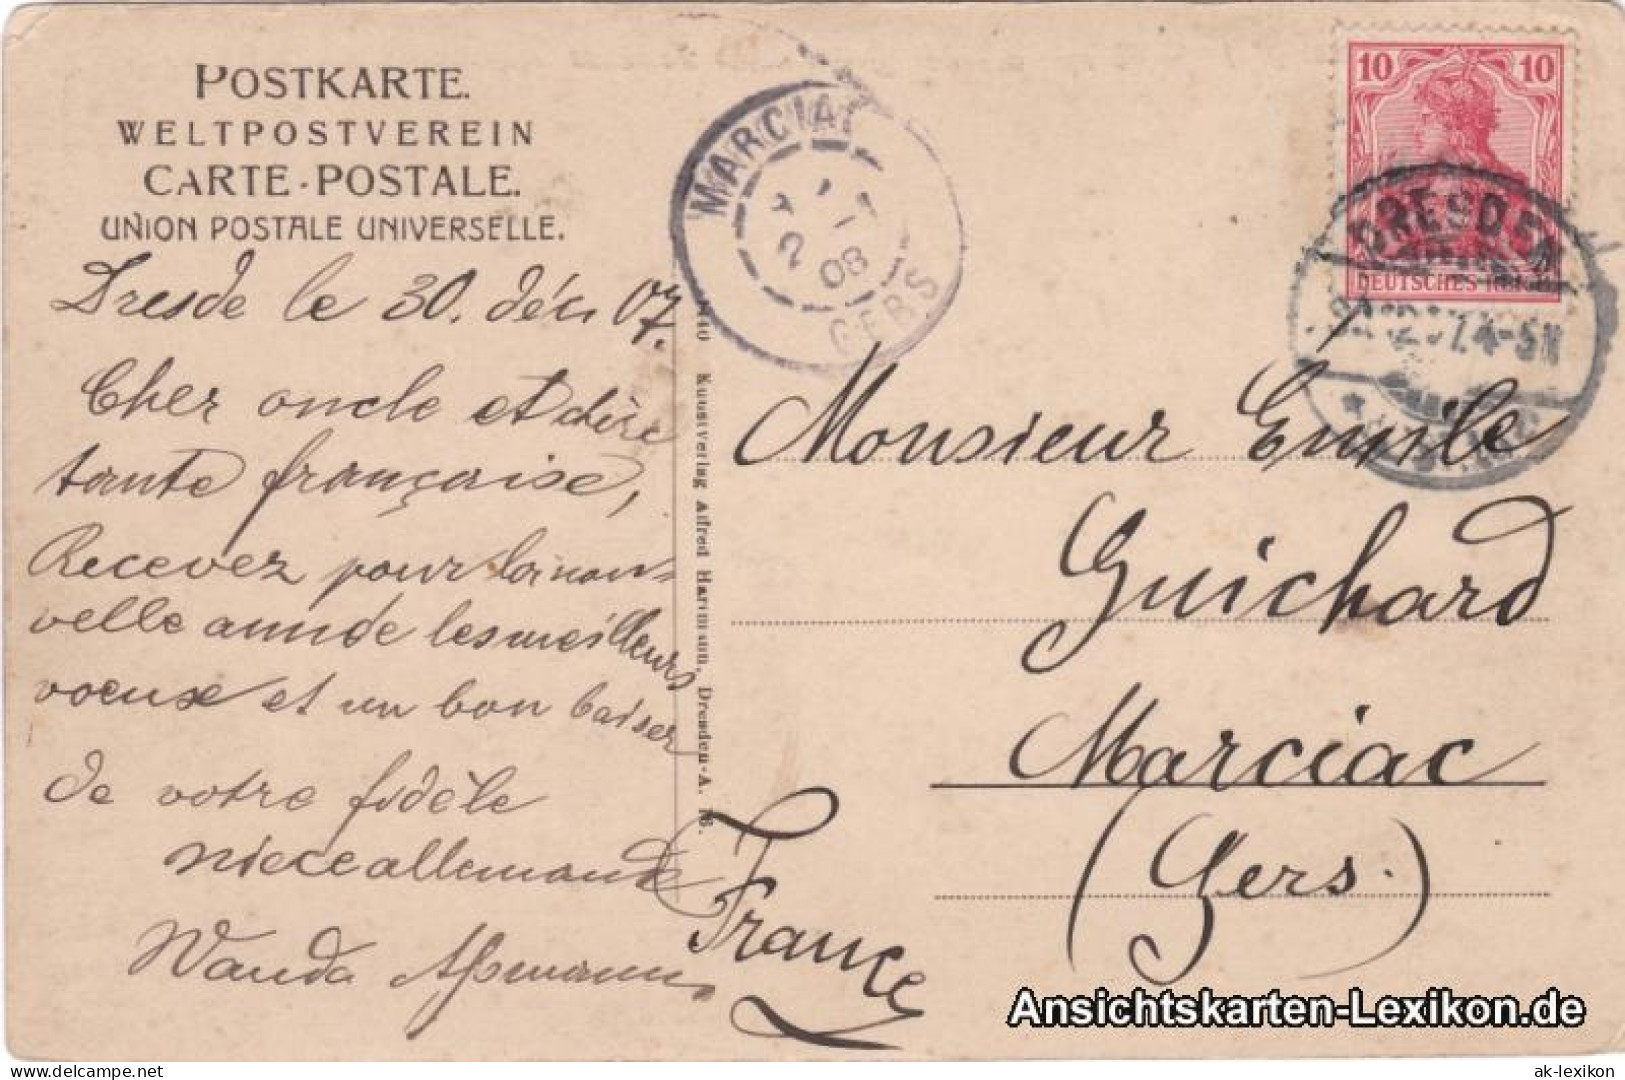 POSTKARTE.
WELTPOSTVEREIN
CARTE-POSTALE.
UNION POSTALE UNIVERSELLE.
Dresde le 30. déc. 07.
Cher oncle et chère
tante française,
Recevez pour la nou-
velle année les meilleurs
voeux et un bon baiser
de votre fidèle
niece allemande
Wanda Aßmann
Kunstverlag Alfred Hartmann, Dresden-A. 16.
MARCIAC
2
08
GERS
10 10
DEUTSCHES REICH
DRESDEN
7.4-5N
Monsieur Emile
Guichard
Marciac
(Gers.)
France
Ansichtskarten-Lexikon.de
delcampe.net
ak-lexikon